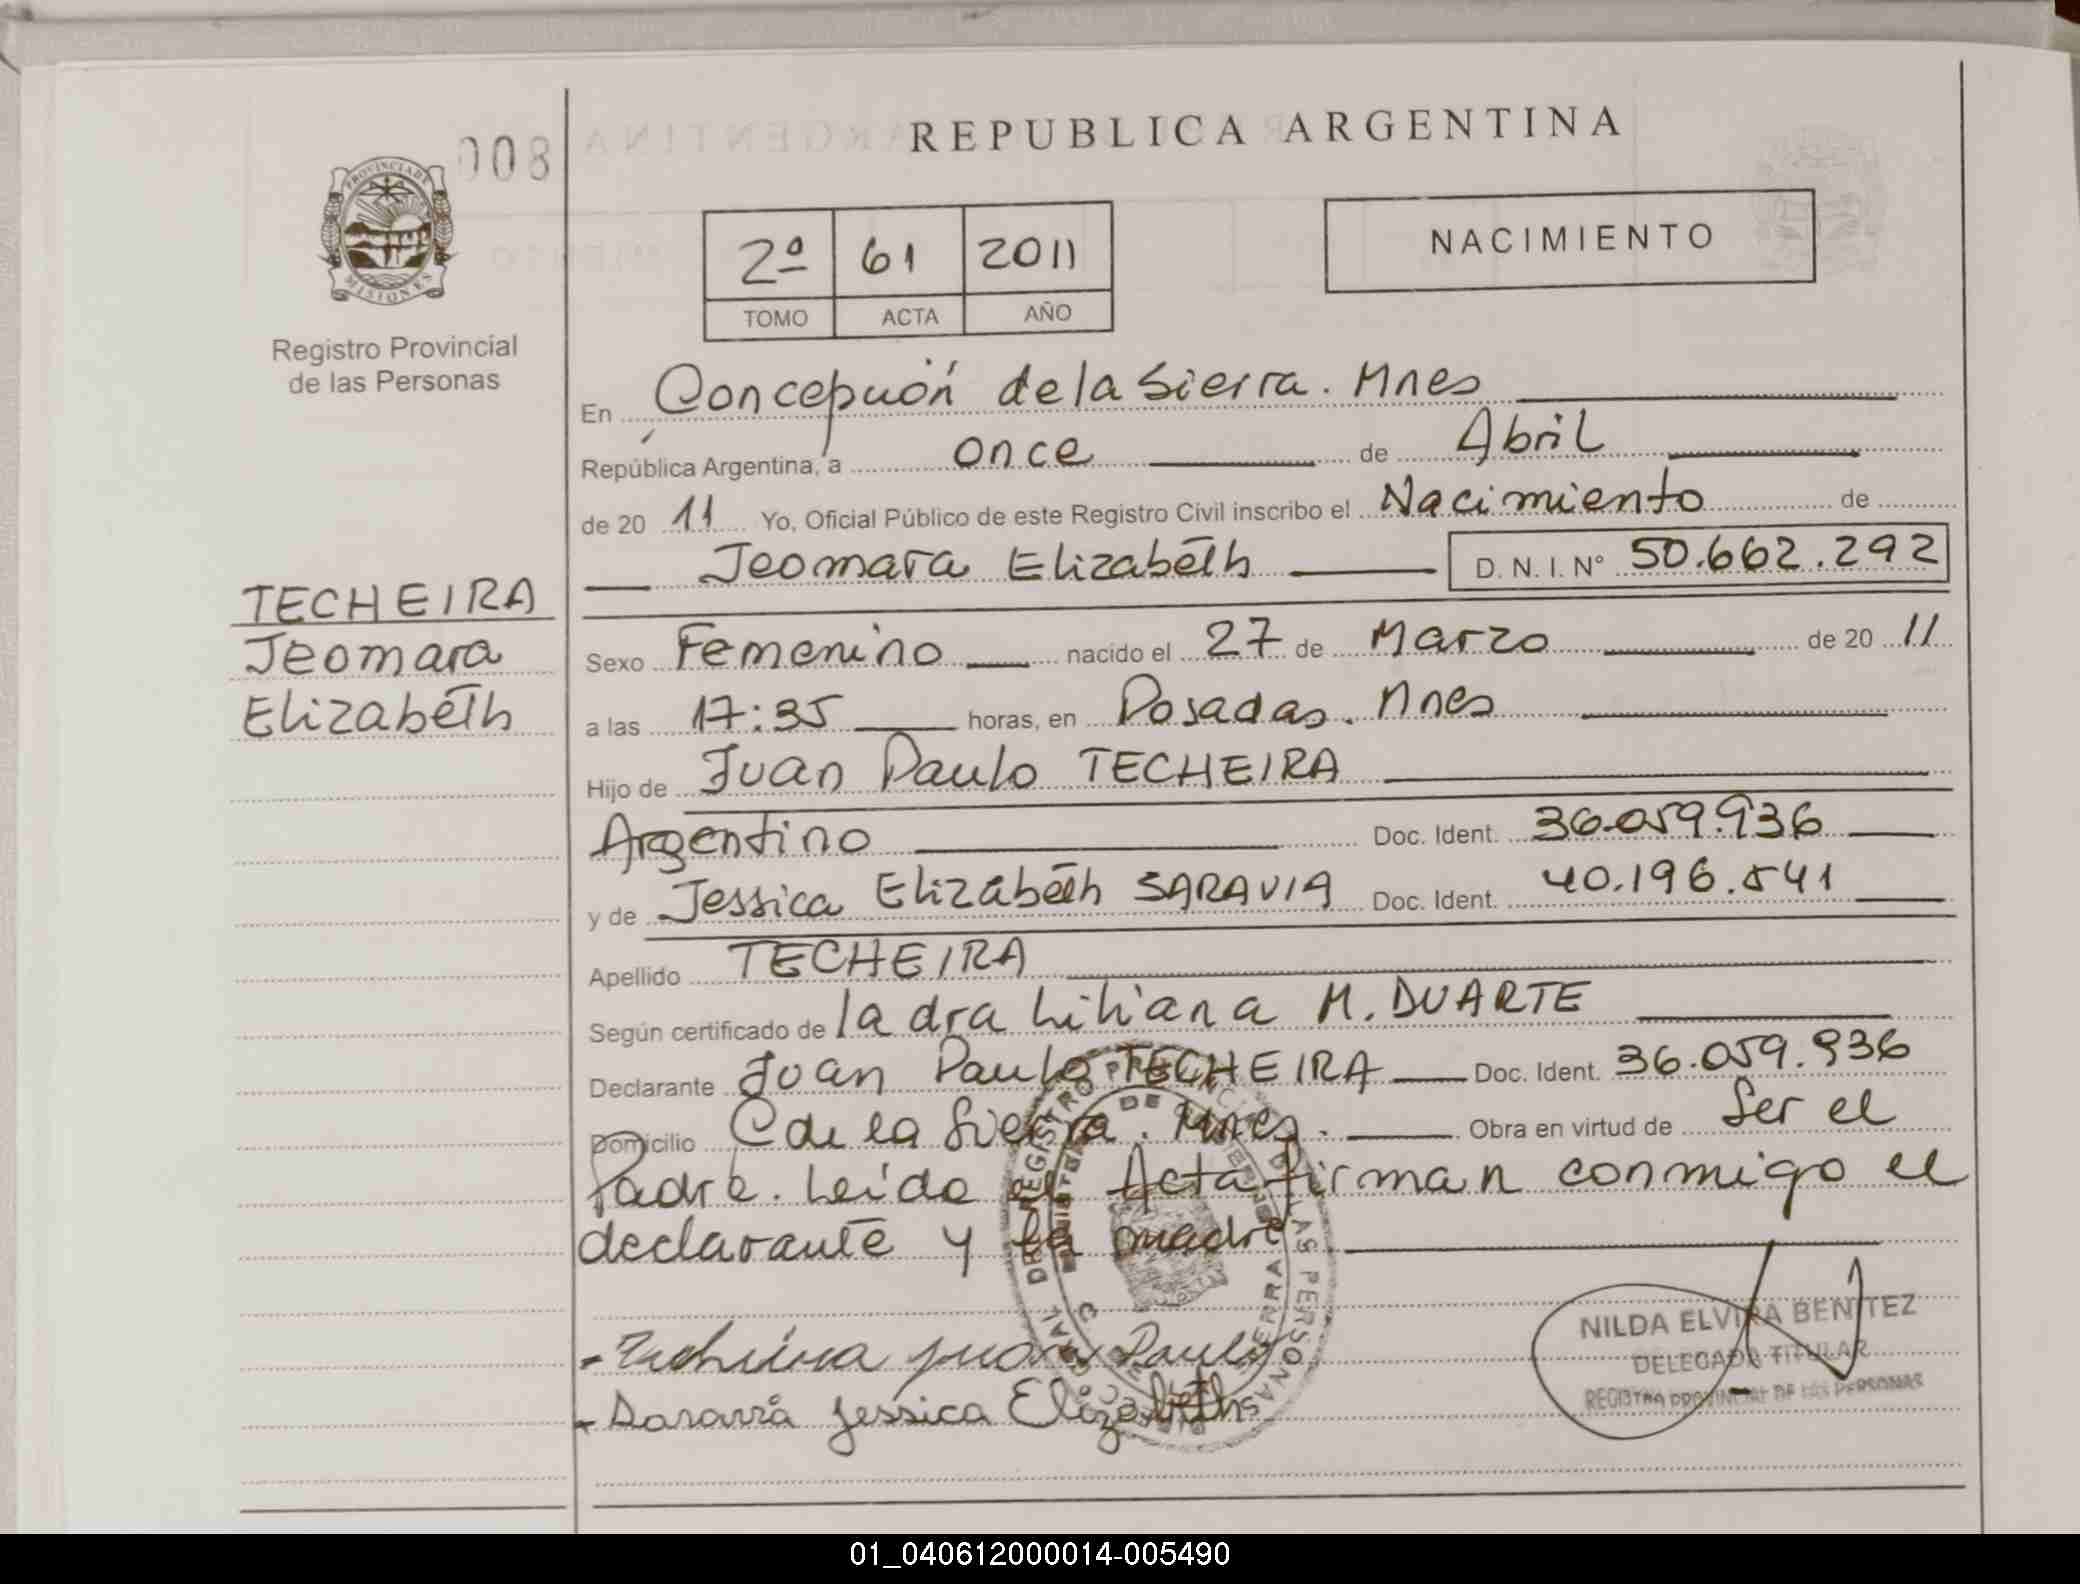 008
REPUBLICA ARGENTINA
PROVINCIA DE
MISIONES
Registro Provincial
de las Personas
2º 61 2011
TOMO ACTA AÑO
NACIMIENTO
En Concepción de la Sierra. Mnes
República Argentina, a once de Abril
de 20 11 Yo, Oficial Público de este Registro Civil inscribo el Nacimiento de
Jeomara Elizabeth D. N. I. Nº 50.662.292
TECHEIRA
Jeomara
Elizabeth
Sexo Femenino nacido el 27 de Marzo de 20 11
a las 17:35 horas, en Posadas. Mnes
Hijo de Juan Paulo TECHEIRA
Argentino Doc. Ident. 36.059.936
y de Jessica Elizabeth SARAVIA Doc. Ident. 40.196.541
Apellido TECHEIRA
Según certificado de la dra Liliana M. DUARTE
Declarante Juan Paulo TECHEIRA Doc. Ident. 36.059.936
Domicilio C de la Sierra. Mnes. Obra en virtud de Ser el
Padre. Leída el Acta firman conmigo el
declarante y la madre
- Techeira Juan Paulo
- Saravia Jessica Elizabeth
NILDA ELVIRA BENITEZ
DELEGADO TITULAR
REGISTRO PROVINCIAL DE LAS PERSONAS
01_040612000014-005490